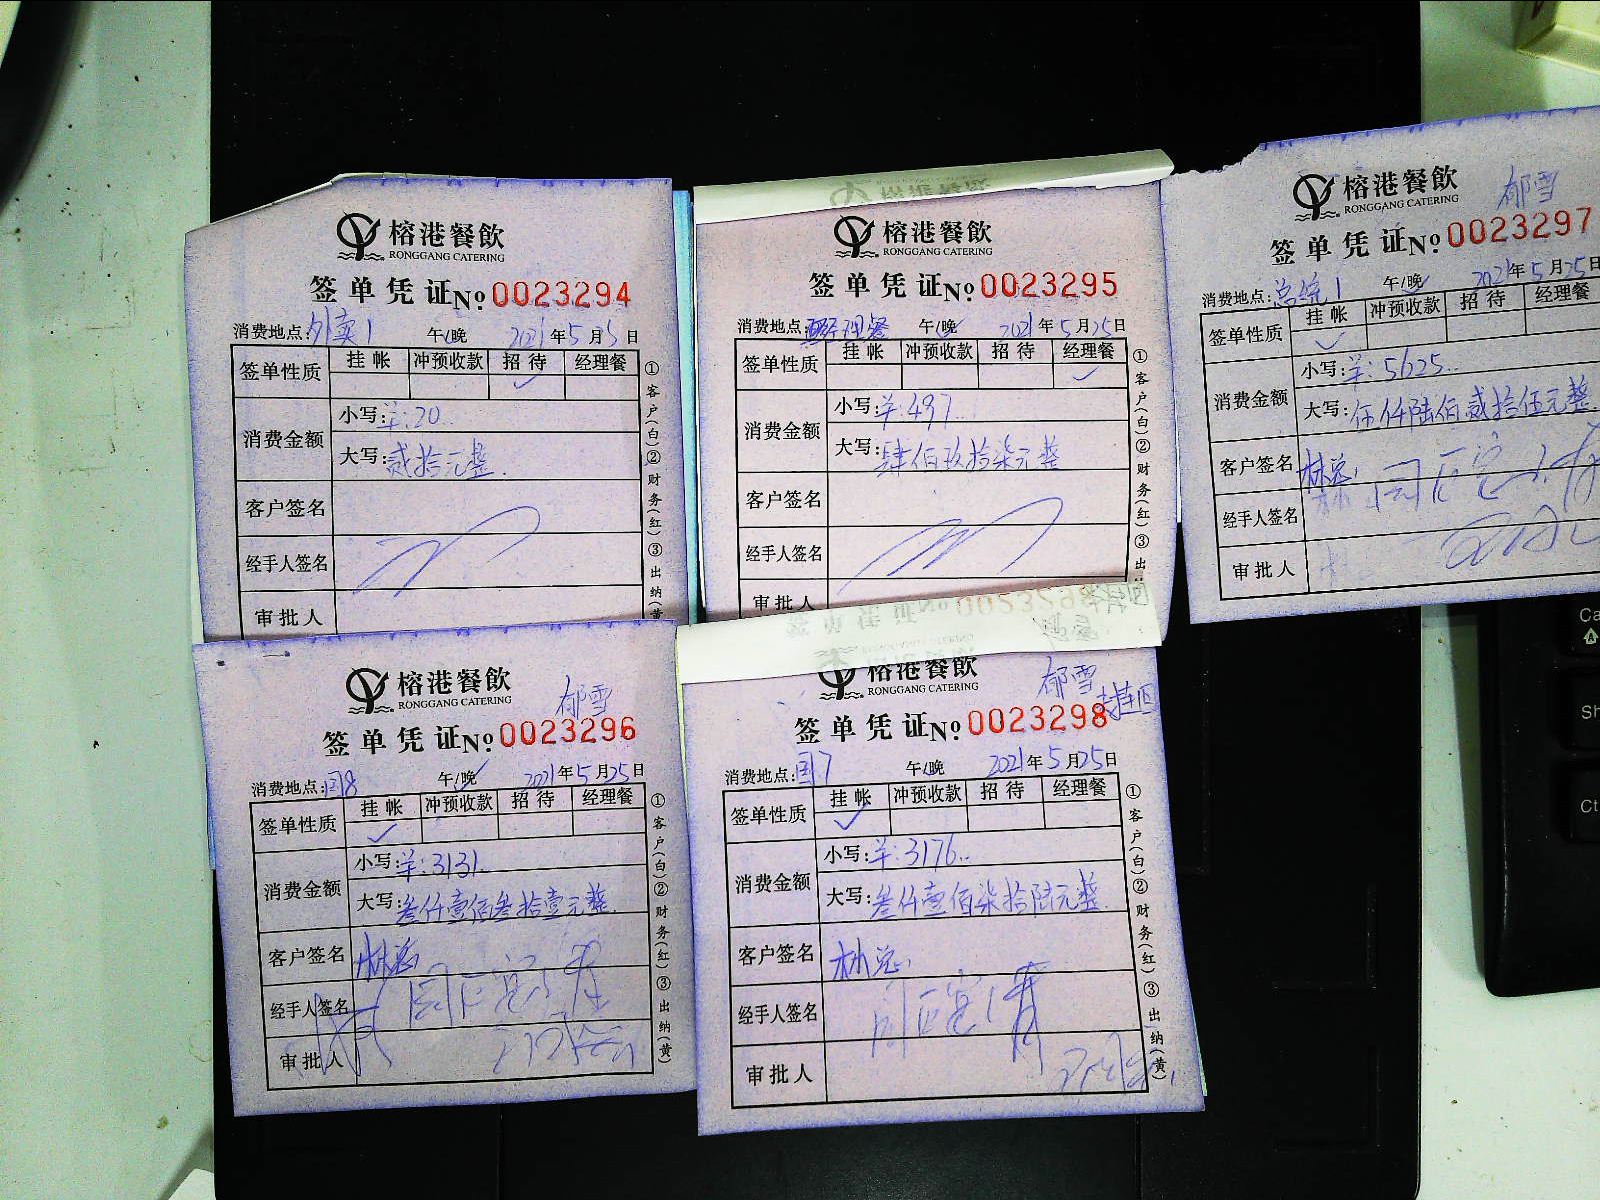 榕港餐飲
RONGGANG CATERING
签单凭证No 0023294
消费地点:外卖1 午/晚 2021年5月5日
签单性质 挂帐 冲预收款 招待 经理餐
消费金额
小写:¥:20..
大写:贰拾元整.
客户签名
经手人签名
审批人
①客户(白)②财务(红)③出纳(黄
榕港餐飲
RONGGANG CATERING
签单凭证No 0023295
消费地点:经理餐 午/晚 2021年5月25日
签单性质 挂帐 冲预收款 招待 经理餐
消费金额
小写:¥:497..
大写:肆佰玖拾柒元整
客户签名
经手人签名
审批人
①客户(白)②财务(红)③出
榕港餐飲 郁雪
RONGGANG CATERING
签单凭证No 0023297
消费地点:总统1 午/晚 2021年5月25日
签单性质 挂帐 冲预收款 招待 经理餐
消费金额
小写:¥:5625..
大写:伍仟陆佰贰拾伍元整
客户签名 林总
经手人签名
审批人
榕港餐飲 郁雪
RONGGANG CATERING
签单凭证No 0023296
消费地点:国8 午/晚 2021年5月25日
签单性质 挂帐 冲预收款 招待 经理餐
消费金额
小写:¥:3131..
大写:叁仟壹佰叁拾壹元整.
客户签名 林总
经手人签名
审批人
①客户(白)②财务(红)③出纳(黄)
榕港餐飲 郁雪
RONGGANG CATERING
签单凭证No 0023298
消费地点:国7 午/晚 2021年5月25日
签单性质 挂帐 冲预收款 招待 经理餐
消费金额
小写:¥:3176..
大写:叁仟壹佰柒拾陆元整.
客户签名 林总
经手人签名
审批人
①客户(白)②财务(红)③出纳(黄)